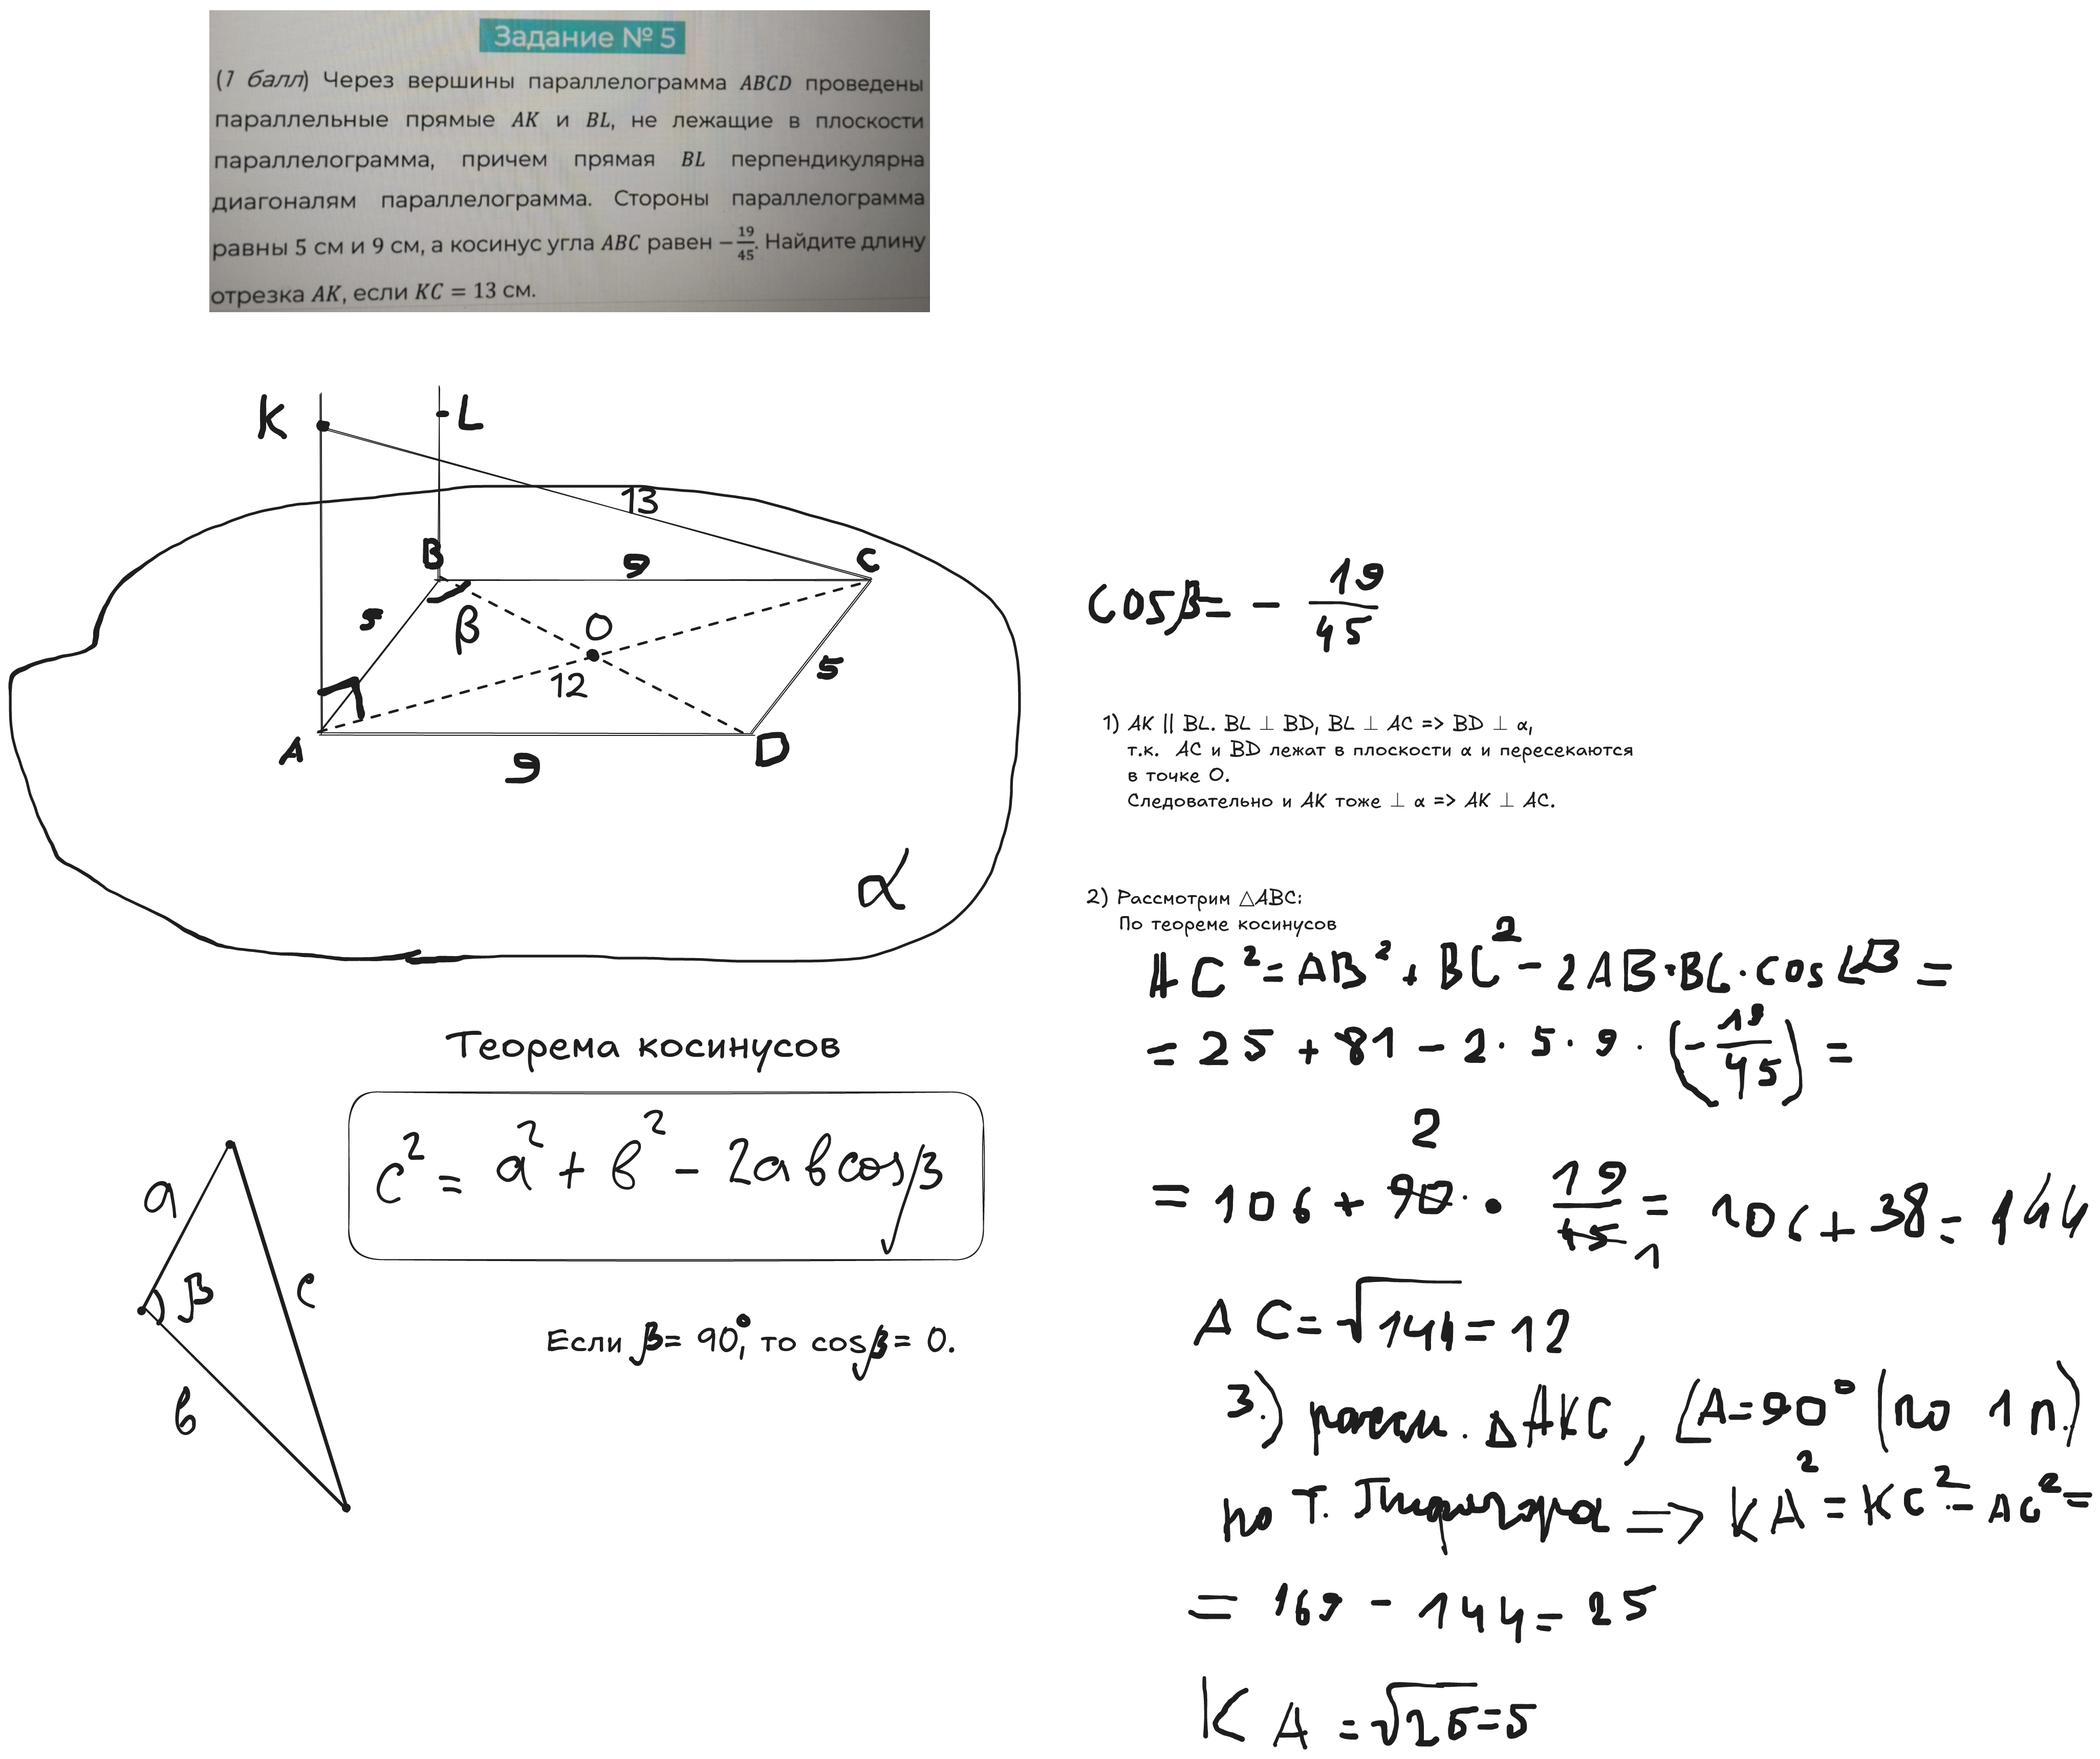 Задание № 5
(1 балл) Через вершины параллелограмма ABCD проведены
параллельные прямые AK и BL, не лежащие в плоскости
параллелограмма, причем прямая BL перпендикулярна
диагоналям параллелограмма. Стороны параллелограмма
равны 5 см и 9 см, а косинус угла ABC равен −19/45. Найдите длину
отрезка AK, если KC = 13 см.
K
L
13
B
9
C
5
β
O
12
5
A
9
D
α
cosβ = - 19/45
1) AK || BL. BL ⊥ BD, BL ⊥ AC => BD ⊥ α,
т.к. AC и BD лежат в плоскости α и пересекаются
в точке O.
Следовательно и AK тоже ⊥ α => AK ⊥ AC.
2) Рассмотрим △ABC:
По теореме косинусов
AC² = AB² + BC² - 2AB·BC·cos∠B =
= 25 + 81 - 2·5·9·(-19/45) =
2
= 106 + 90 · 19/45 = 106 + 38 = 144
1
AC = √144 = 12
3.) рассм. △AKC, ∠A = 90° (по 1 п.)
по т. Пифагора => KA² = KC² - AC² =
= 169 - 144 = 25
KA = √25 = 5
Теорема косинусов
c² = a² + b² - 2ab cosβ
a
β
c
b
Если β = 90°, то cosβ = 0.